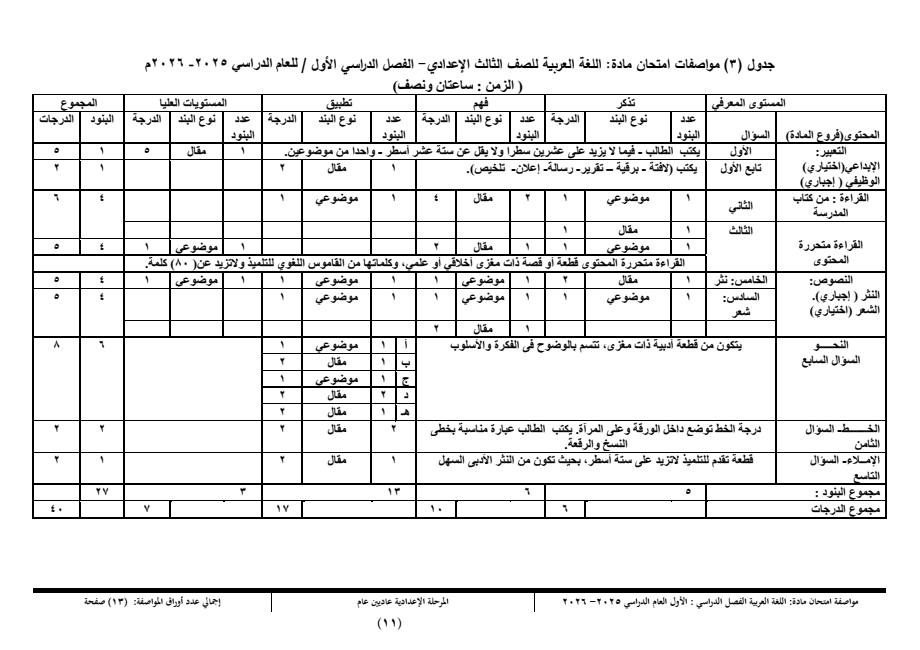 جدول (٣) مواصفات امتحان مادة: اللغة العربية للصف الثالث الإعدادي– الفصل الدراسي الأول / للعام الدراسي ٢٠٢٥- ٢٠٢٦م
( الزمن : ساعتان ونصف)
المستوى المعرفي تذكر فهم تطبيق المستويات العليا المجموع
المحتوى(فروع المادة) السؤال عدد البنود نوع البند الدرجة عدد البنود نوع البند الدرجة عدد البنود نوع البند الدرجة عدد البنود نوع البند الدرجة البنود الدرجات
التعبير: الأول يكتب الطالب - فيما لا يزيد على عشرين سطرا ولا يقل عن ستة عشر أسطر - واحدا من موضوعين. ١ مقال ٥ ١ ٥
الإبداعي(اختياري) تابع الأول يكتب (لافتة - برقية – تقرير- رسالة- إعلان- تلخيص). ١ مقال ٢ ١ ٢
الوظيفي ( إجباري)
القراءة : من كتاب المدرسة الثاني ١ موضوعي ١ ٢ مقال ٤ ١ موضوعي ١ ٤ ٦
القراءة متحررة المحتوى الثالث ١ مقال ١
١ موضوعي ١ ١ مقال ٢ ١ موضوعي ١ ٤ ٥
القراءة متحررة المحتوى قطعة أو قصة ذات مغزى أخلاقي أو علمي، وكلماتها من القاموس اللغوي للتلميذ ولاتزيد عن( ٨٠ ) كلمة.
النصوص: الخامس: نثر ١ مقال ٢ ١ موضوعي ١ ١ موضوعي ١ ١ موضوعي ١ ٤ ٥
النثر ( إجباري). السادس: شعر ١ موضوعي ١ ١ موضوعي ١ ١ موضوعي ١ ٤ ٥
الشعر (اختياري)
١ مقال ٢
النحـــو السؤال السابع يتكون من قطعة أدبية ذات مغزى، تتسم بالوضوح فى الفكرة والأسلوب أ ١ موضوعي ١ ٦ ٨
ب ١ مقال ٢
ج ١ موضوعي ١
د ٢ مقال ٢
هـ ١ مقال ٢
الخـــط- السؤال الثامن درجة الخط توضع داخل الورقة وعلى المرآة. يكتب الطالب عبارة مناسبة بخطى النسخ والرقعة. ٢ مقال ٢ ٢ ٢
الإملاء- السؤال التاسع قطعة تقدم للتلميذ لاتزيد على ستة أسطر، بحيث تكون من النثر الأدبى السهل ١ مقال ٢ ١ ٢
مجموع البنود : ٥ ٦ ١٣ ٣ ٢٧
مجموع الدرجات ٦ ١٠ ١٧ ٧ ٤٠
مواصفة امتحان مادة: اللغة العربية الفصل الدراسي : الأول العام الدراسي ٢٠٢٥– ٢٠٢٦ المرحلة الإعدادية عاديين عام إجمالي عدد أوراق المواصفة: (١٣) صفحة
(١١)